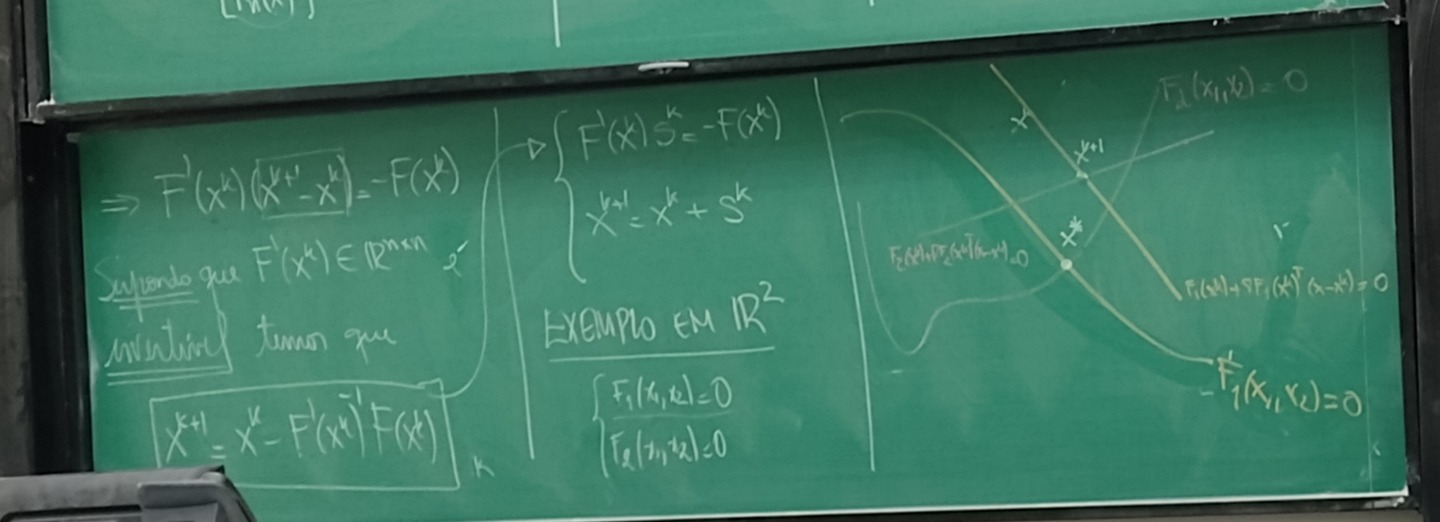 ⇒ F'(x^k)(x^{k+1} - x^k) = -F(x^k)
Supondo que F'(x^k) ∈ ℝ^{n×n} é
invertível temos que
x^{k+1} = x^k - F'(x^k)^{-1} F(x^k)
F'(x^k) S^k = -F(x^k)
x^{k+1} = x^k + S^k
EXEMPLO EM ℝ^2
F_1(x_1, x_2) = 0
F_2(x_1, x_2) = 0
F_2(x_1, x_2) = 0
x^{k+1}
x^*
F_2(x^k) + ∇F_2(x^k)^T (x - x^k) = 0
F_1(x^k) + ∇F_1(x^k)^T (x - x^k) = 0
F_1(x_1, x_2) = 0